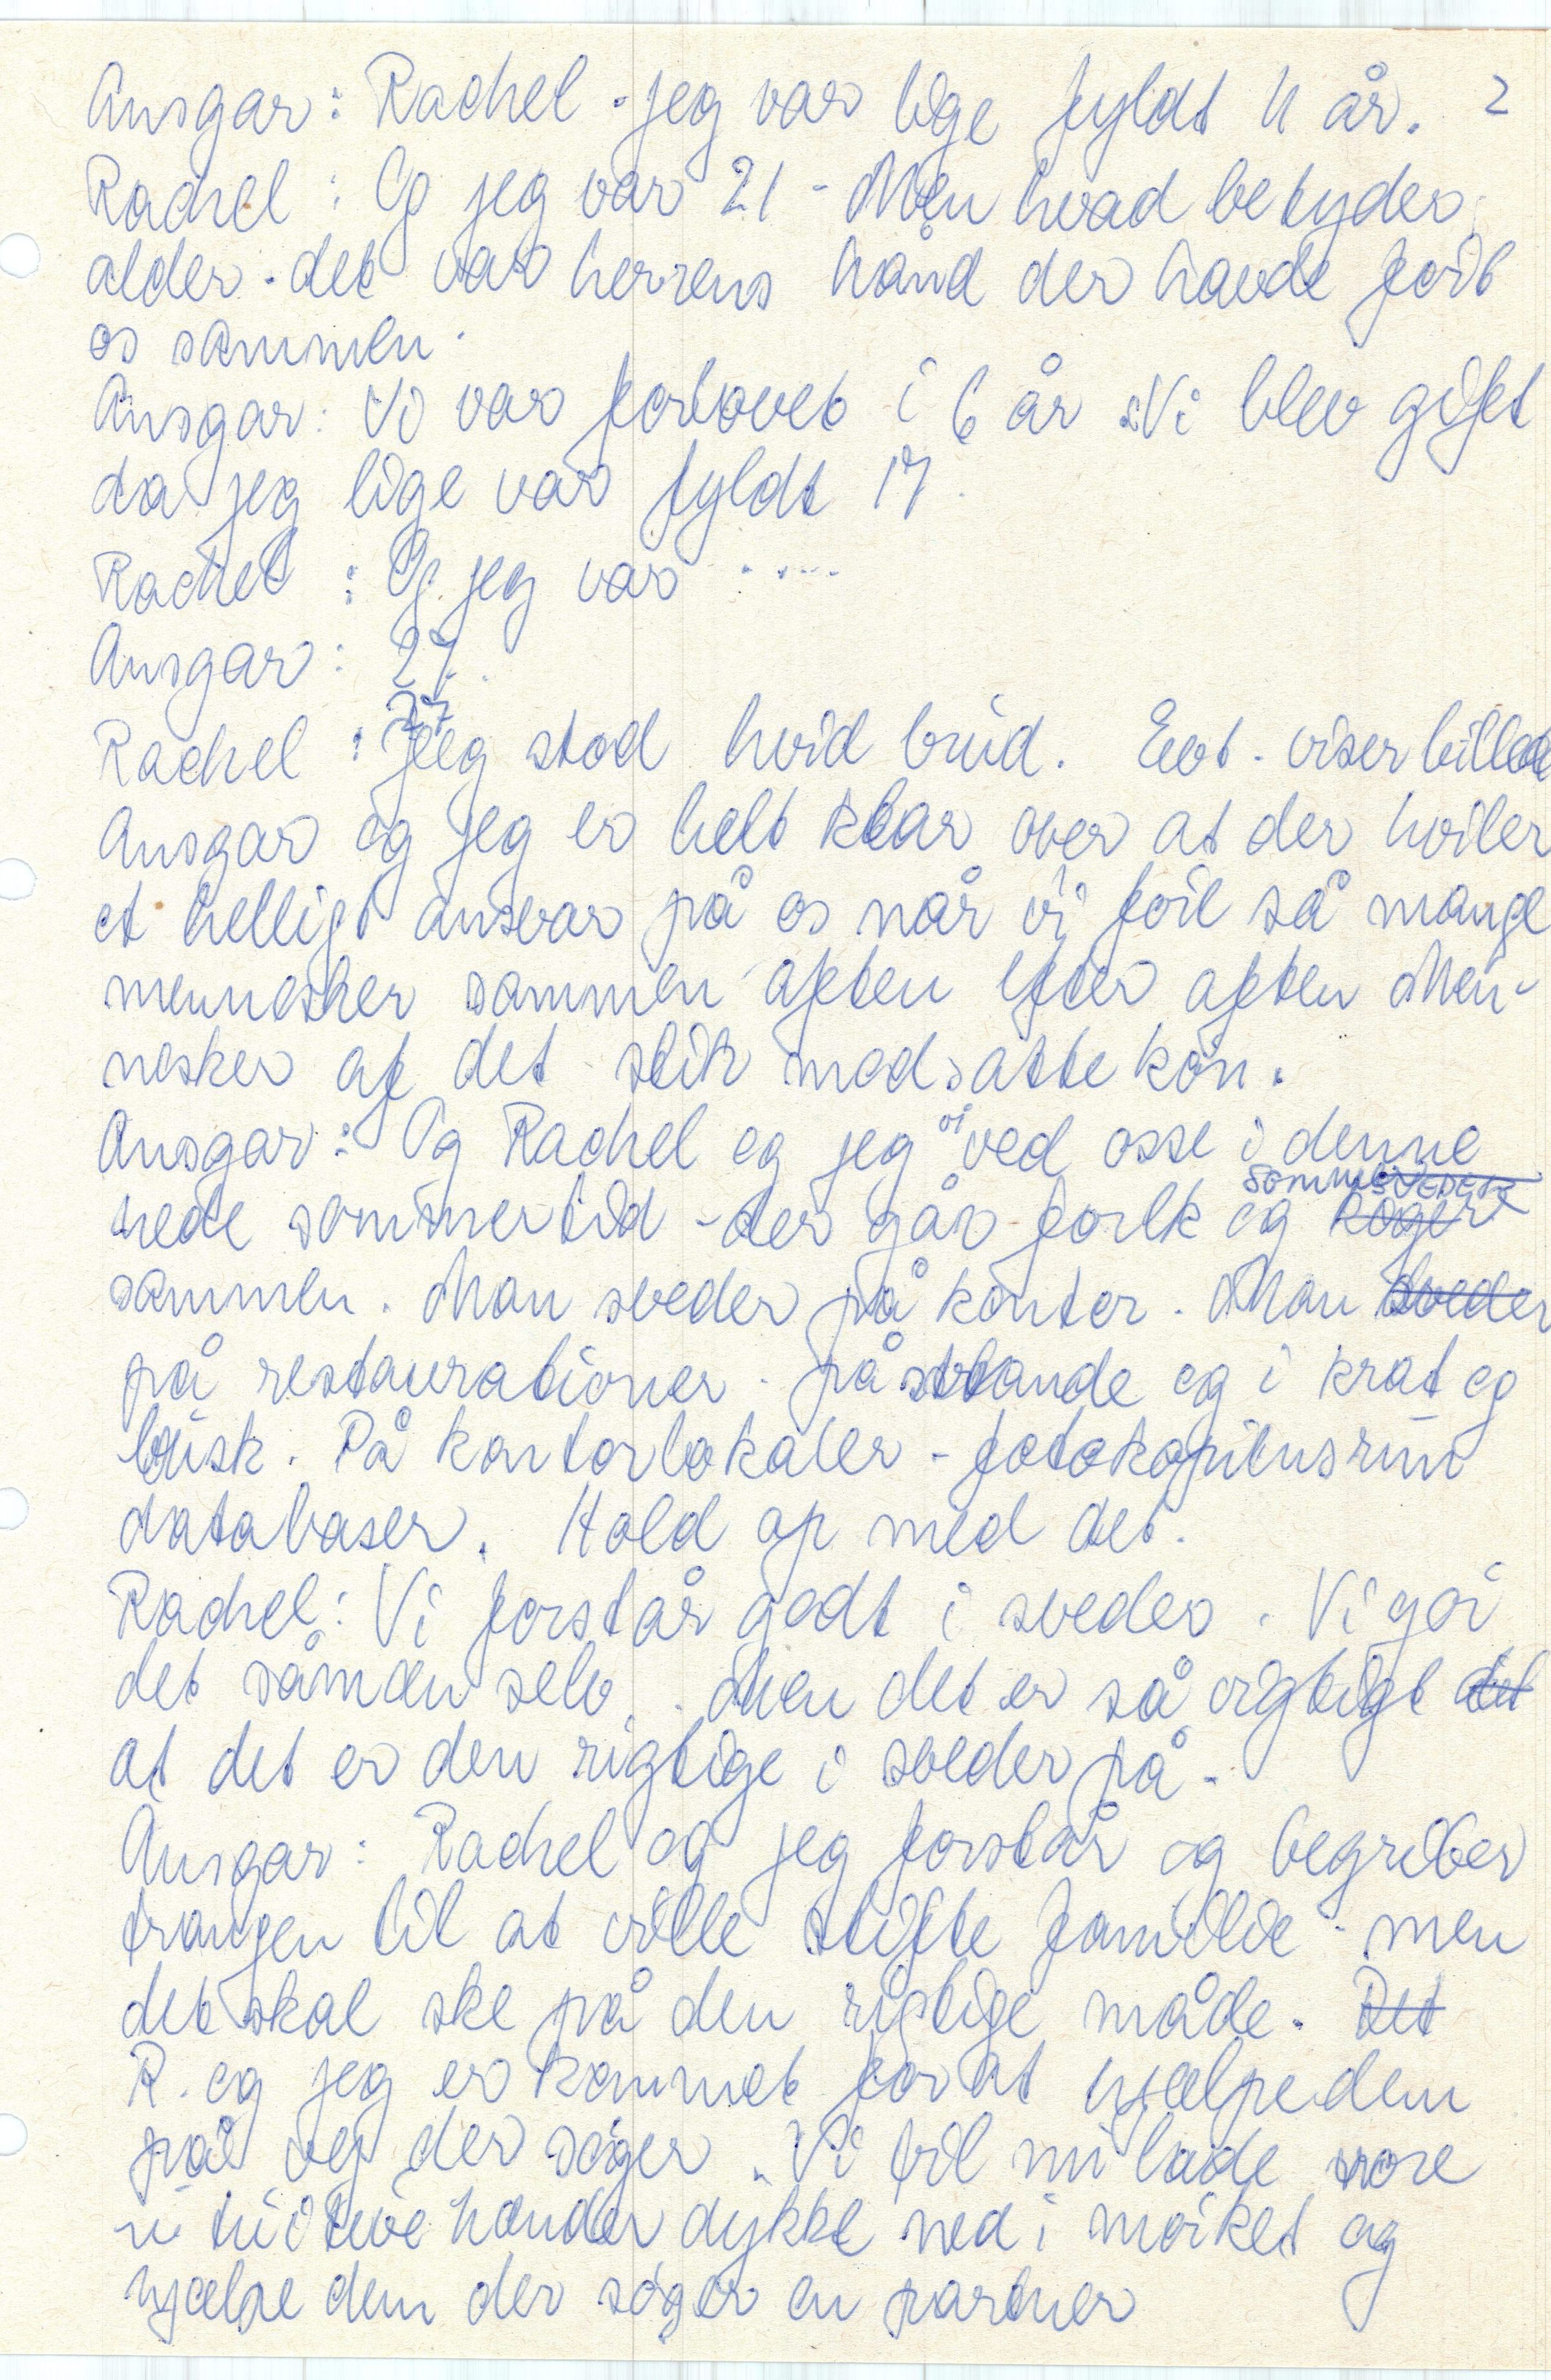 Ansgar: Rachel - jeg var lige fyldt 11 år. 2
Rachel: Og jeg var 21 - Men hvad betyder
alder - det var herrens hånd der havde ført
os sammen.
Ansgar: Vi var forlovet i 6 år. Vi blev gift
da jeg lige var fyldt 17
Rachel: Og jeg var .....
Ansgar: 27.
Rachel: 27 Jeg stod hvid brud. Evt. viser billede
Ansgar og jeg er helt klar over at der hviler
et helligt ansvar på os når vi før så mange
mennesker sammen aften efter aften Men-
nesker af det stik modsatte køn.
Ansgar: Og Rachel og jeg vi ved osse i denne
hede sommertid - der går folk og sommersveder
sammen. Man sveder på kontor. Man sveder
på restaurationer - på strande og i krat og
busk. På kontorlokaler - fotokopitusrum
databaser. Hold op med det.
Rachel: Vi forstår godt i sveder. Vi gør
det såmæn selv. Men det er så vigtigt det
at det er den rigtige i sveder på.
Ansgar: Rachel og jeg forstår og begriber
trangen til at ville stifte familie - men
det skal ske på den rigtige måde. Det
R. og jeg er kommet for at hjælpe dem
på vej der søger. Vi vil nu lade vore
hænder dykke ned i mørket og
hjælpe dem der søger en partner